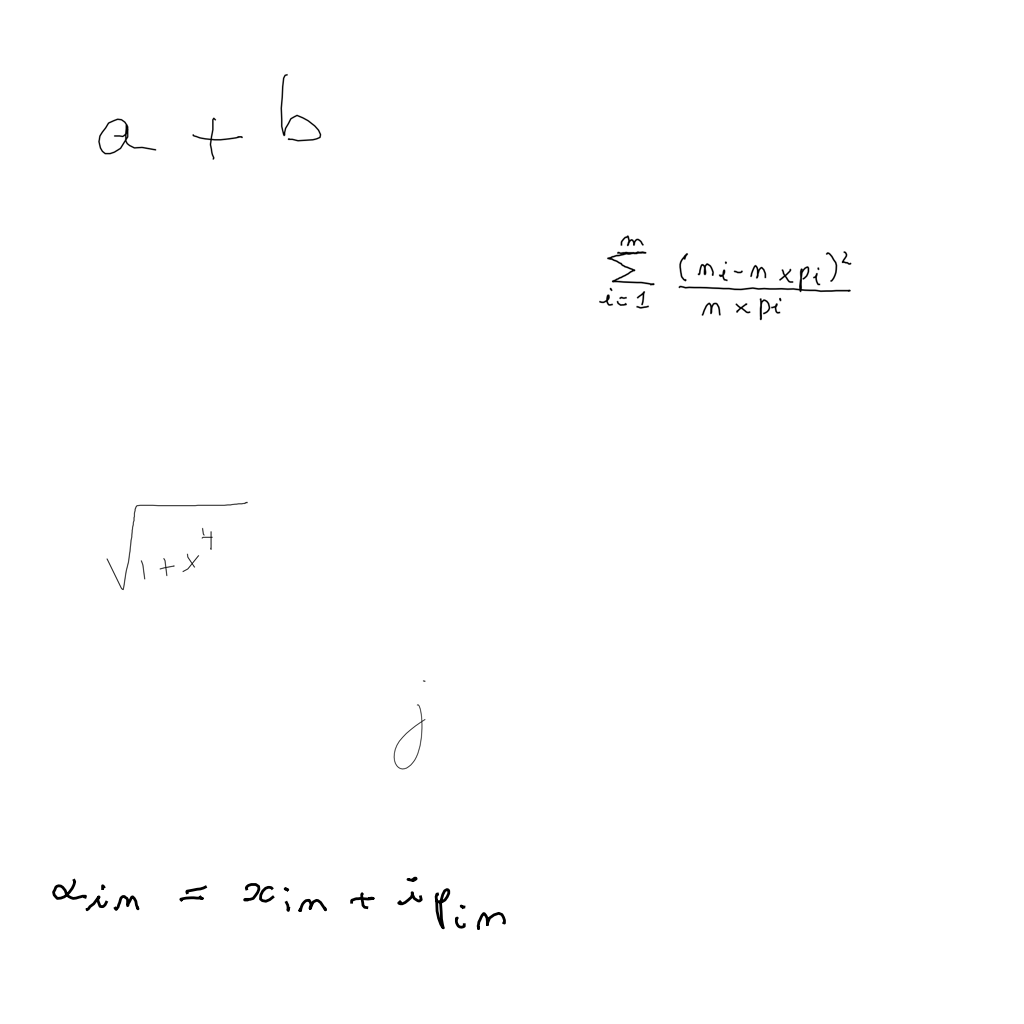 a + b
\sum_{i=1}^{m} \frac{(n_i - n \times p_i)^2}{n \times p_i}
\sqrt{1 + x^4}
j
\alpha_{in} = x_{in} + i p_{in}